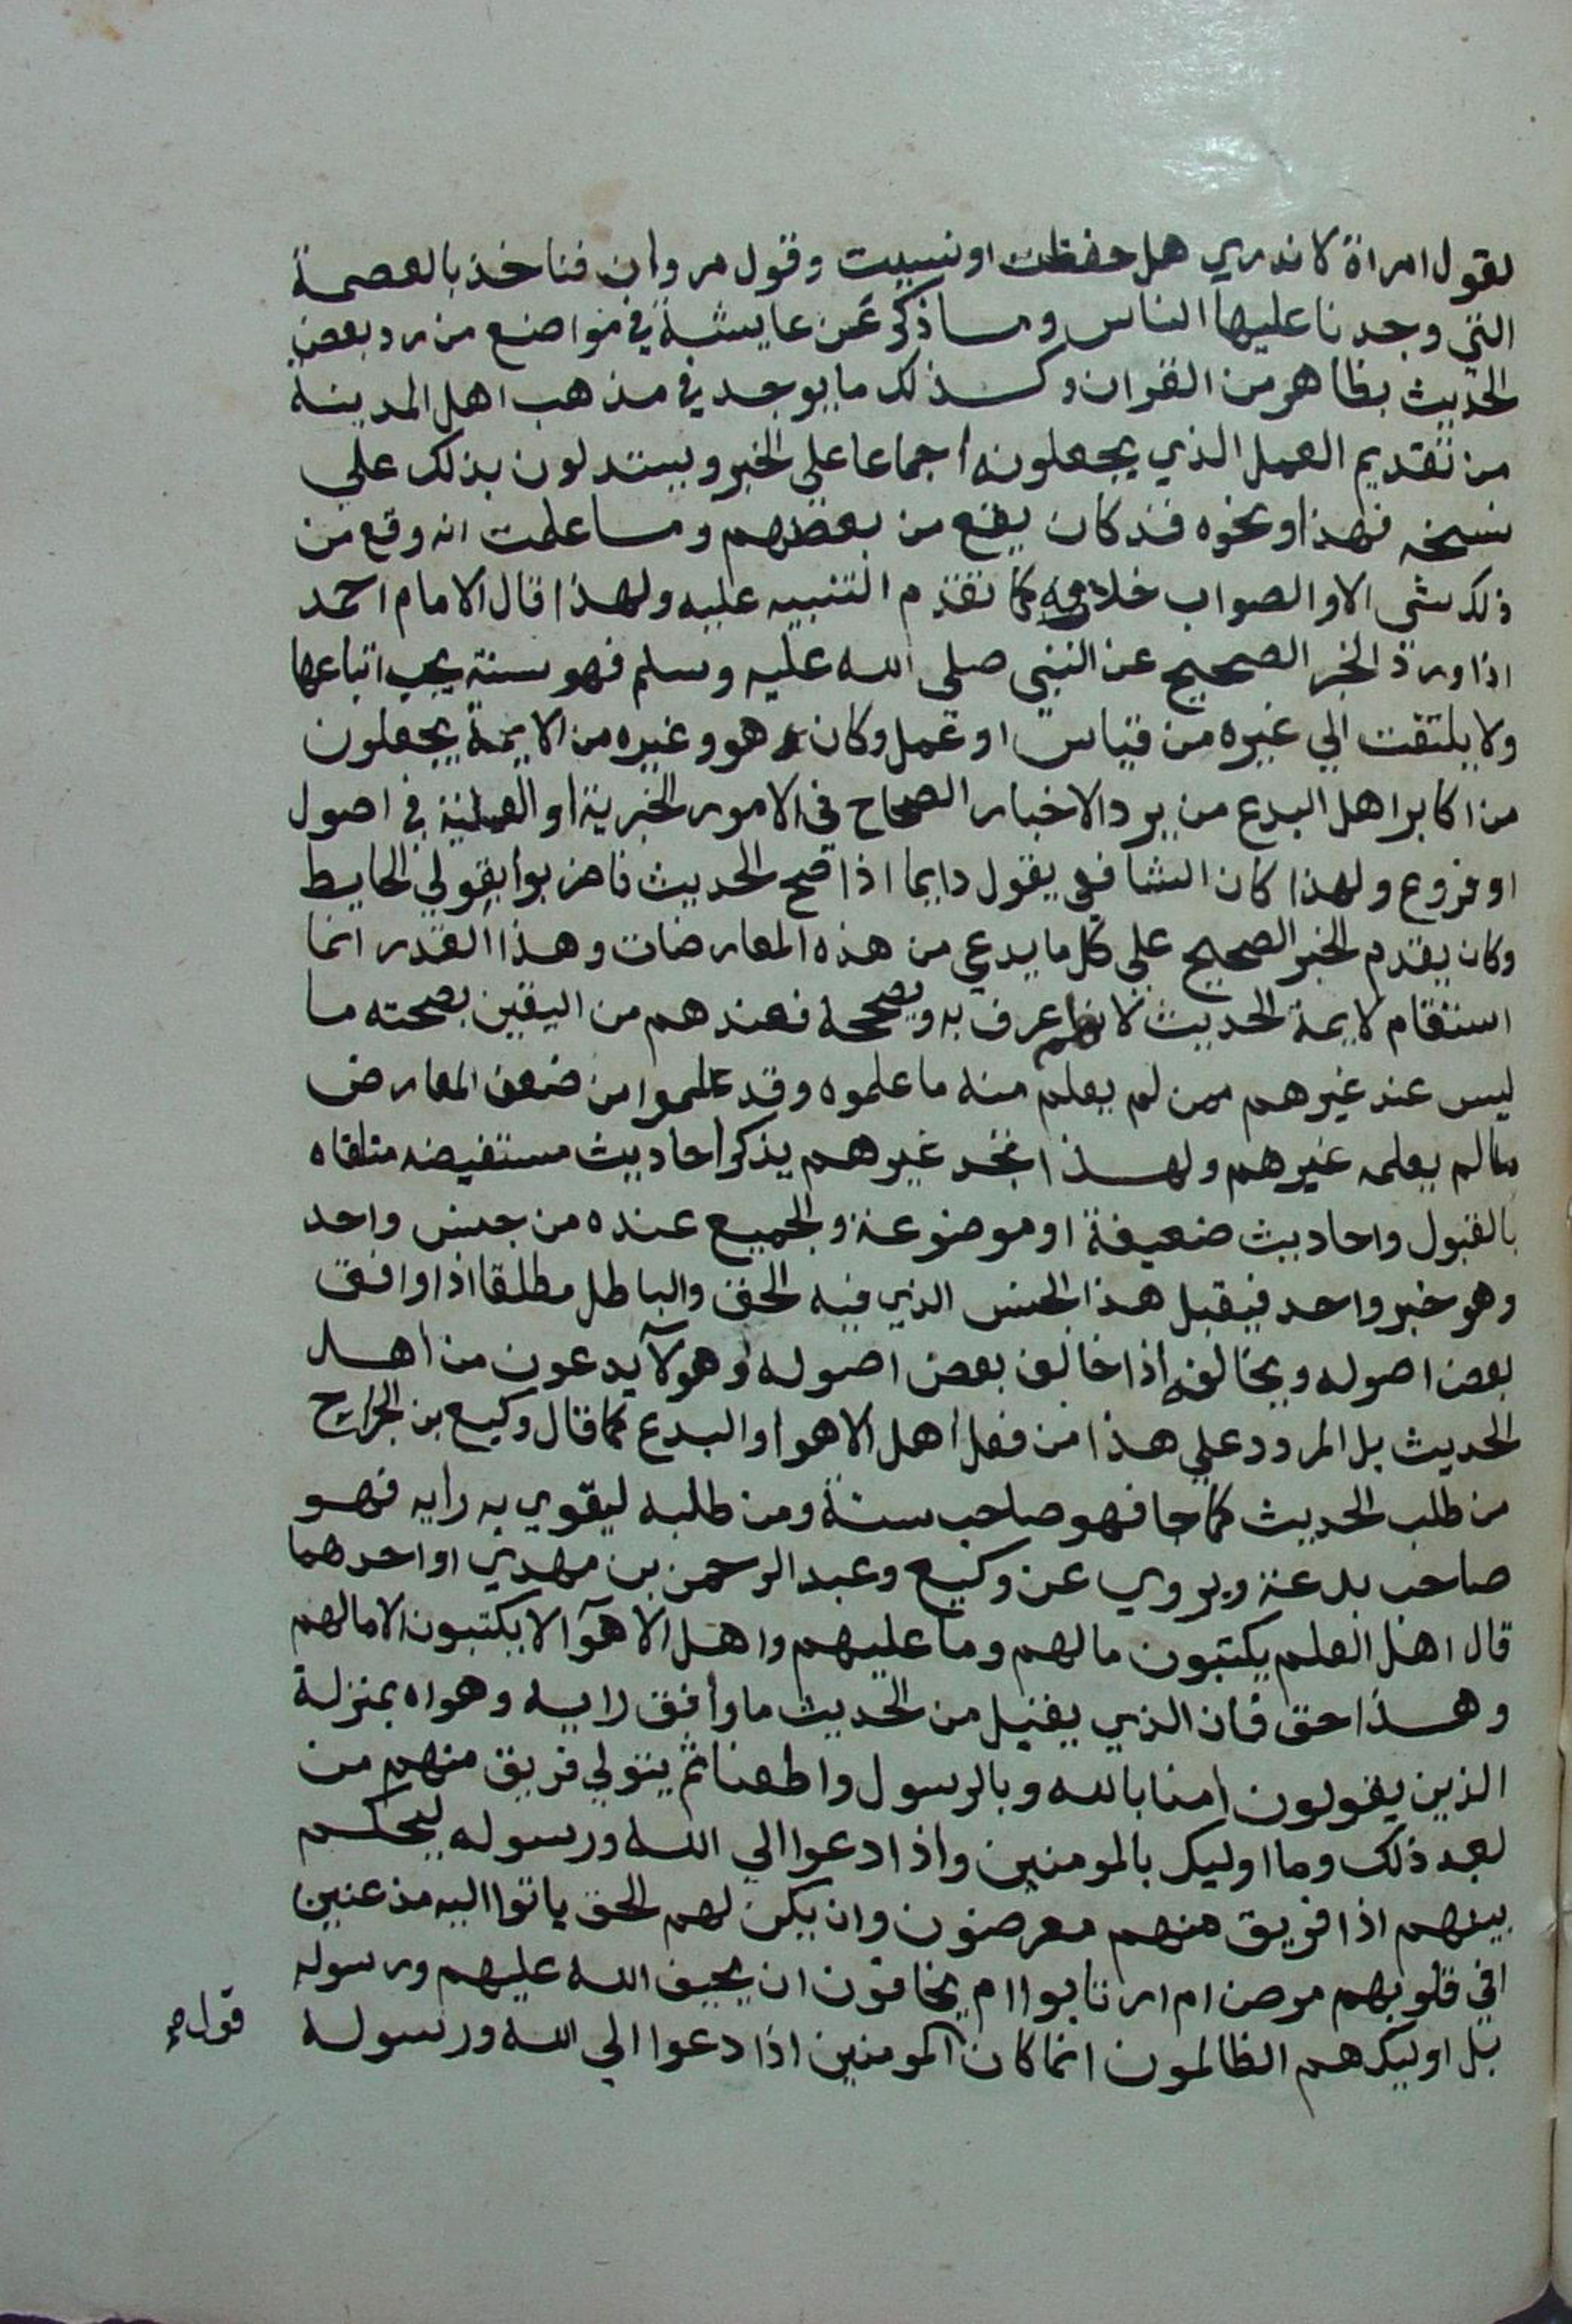 لقول امراة لا ندري هل حفظت او نسيت وقول مروان فناخذ بالعصمة
التي وجدنا عليها الناس وما ذكر عن عايشة في مواضع من رد بعض
الحديث بظاهر من القران وكذلك ما يوجد في مذهب اهل المدينة
من تقديم العمل الذي يجعلونه اجماعا على الخبر ويستدلون بذلك علي
نسخه فهذا ونحوه قد كان يقع من بعضهم وما علمت انه وقع من
ذلك شي الا والصواب خلافه كما تقدم التنبيه عليه ولهذا قال الامام احمد
اذا ورد الخبر الصحيح عن النبي صلى الله عليه وسلم فهو سنة يجب اتباعها
ولا يلتفت الي غيره من قياس او عمل وكان هو وغيره من الايمة يجعلون
من اكابر اهل البدع من يرد الاخبار الصحاح في الامور الخبرية او العملية في اصول
او فروع ولهذا كان الشافعي يقول دايما اذا صح الحديث فاضربوا بقولي الحايط
وكان يقدم الخبر الصحيح علي كل ما يدعي من هذه المعارضات وهذا القدر انما
استقام لايمة الحديث لانهم عرف به ويصححه فعندهم من اليقين بصحته ما
ليس عند غيرهم ممن لم يعلم منه ما علموه وقد علموا من ضعف المعارض
مالم يعلمه غيرهم ولهذا تجد غيرهم يذكر احاديث مستفيضه متلقاه
بالقبول واحاديث ضعيفة او موضوعة والجميع عنده من جنس واحد
وهو خبر واحد فيقبل هذا الجنس الذي فيه الحق والباطل مطلقا اذا وافق
بعض اصوله ويخالفه اذا خالف بعض اصوله وهولآ يدعون من اهل
الحديث بل المردود علي هذا من فعل اهل الاهوا والبدع كما قال وكيع بن الجراح
من طلب الحديث كما جا فهو صاحب سنة ومن طلبه ليقوي به رايه فهو
صاحب بدعة ويروي عن وكيع وعبد الرحمن بن مهدي او احدهما
قال اهل العلم يكتبون ما لهم وما عليهم واهل الاهوآ لا يكتبون الا ما لهم
وهذا حق فان الذي يقبل من الحديث ما وافق رايه وهواه بمنزلة
الذين يقولون امنا بالله وبالرسول واطعنا ثم يتولي فريق منهم من
بعد ذلك وما اوليك بالمومنين واذا دعوا الي الله ورسوله ليحكم
بينهم اذا فريق منهم معرضون وان يكن لهم الحق ياتوا اليه مذعنين
افي قلوبهم مرض ام ارتابوا ام يخافون ان يحيف الله عليهم ورسوله
بل اوليك هم الظالمون انما كان المومنين اذا دعوا الي الله ورسوله
قول